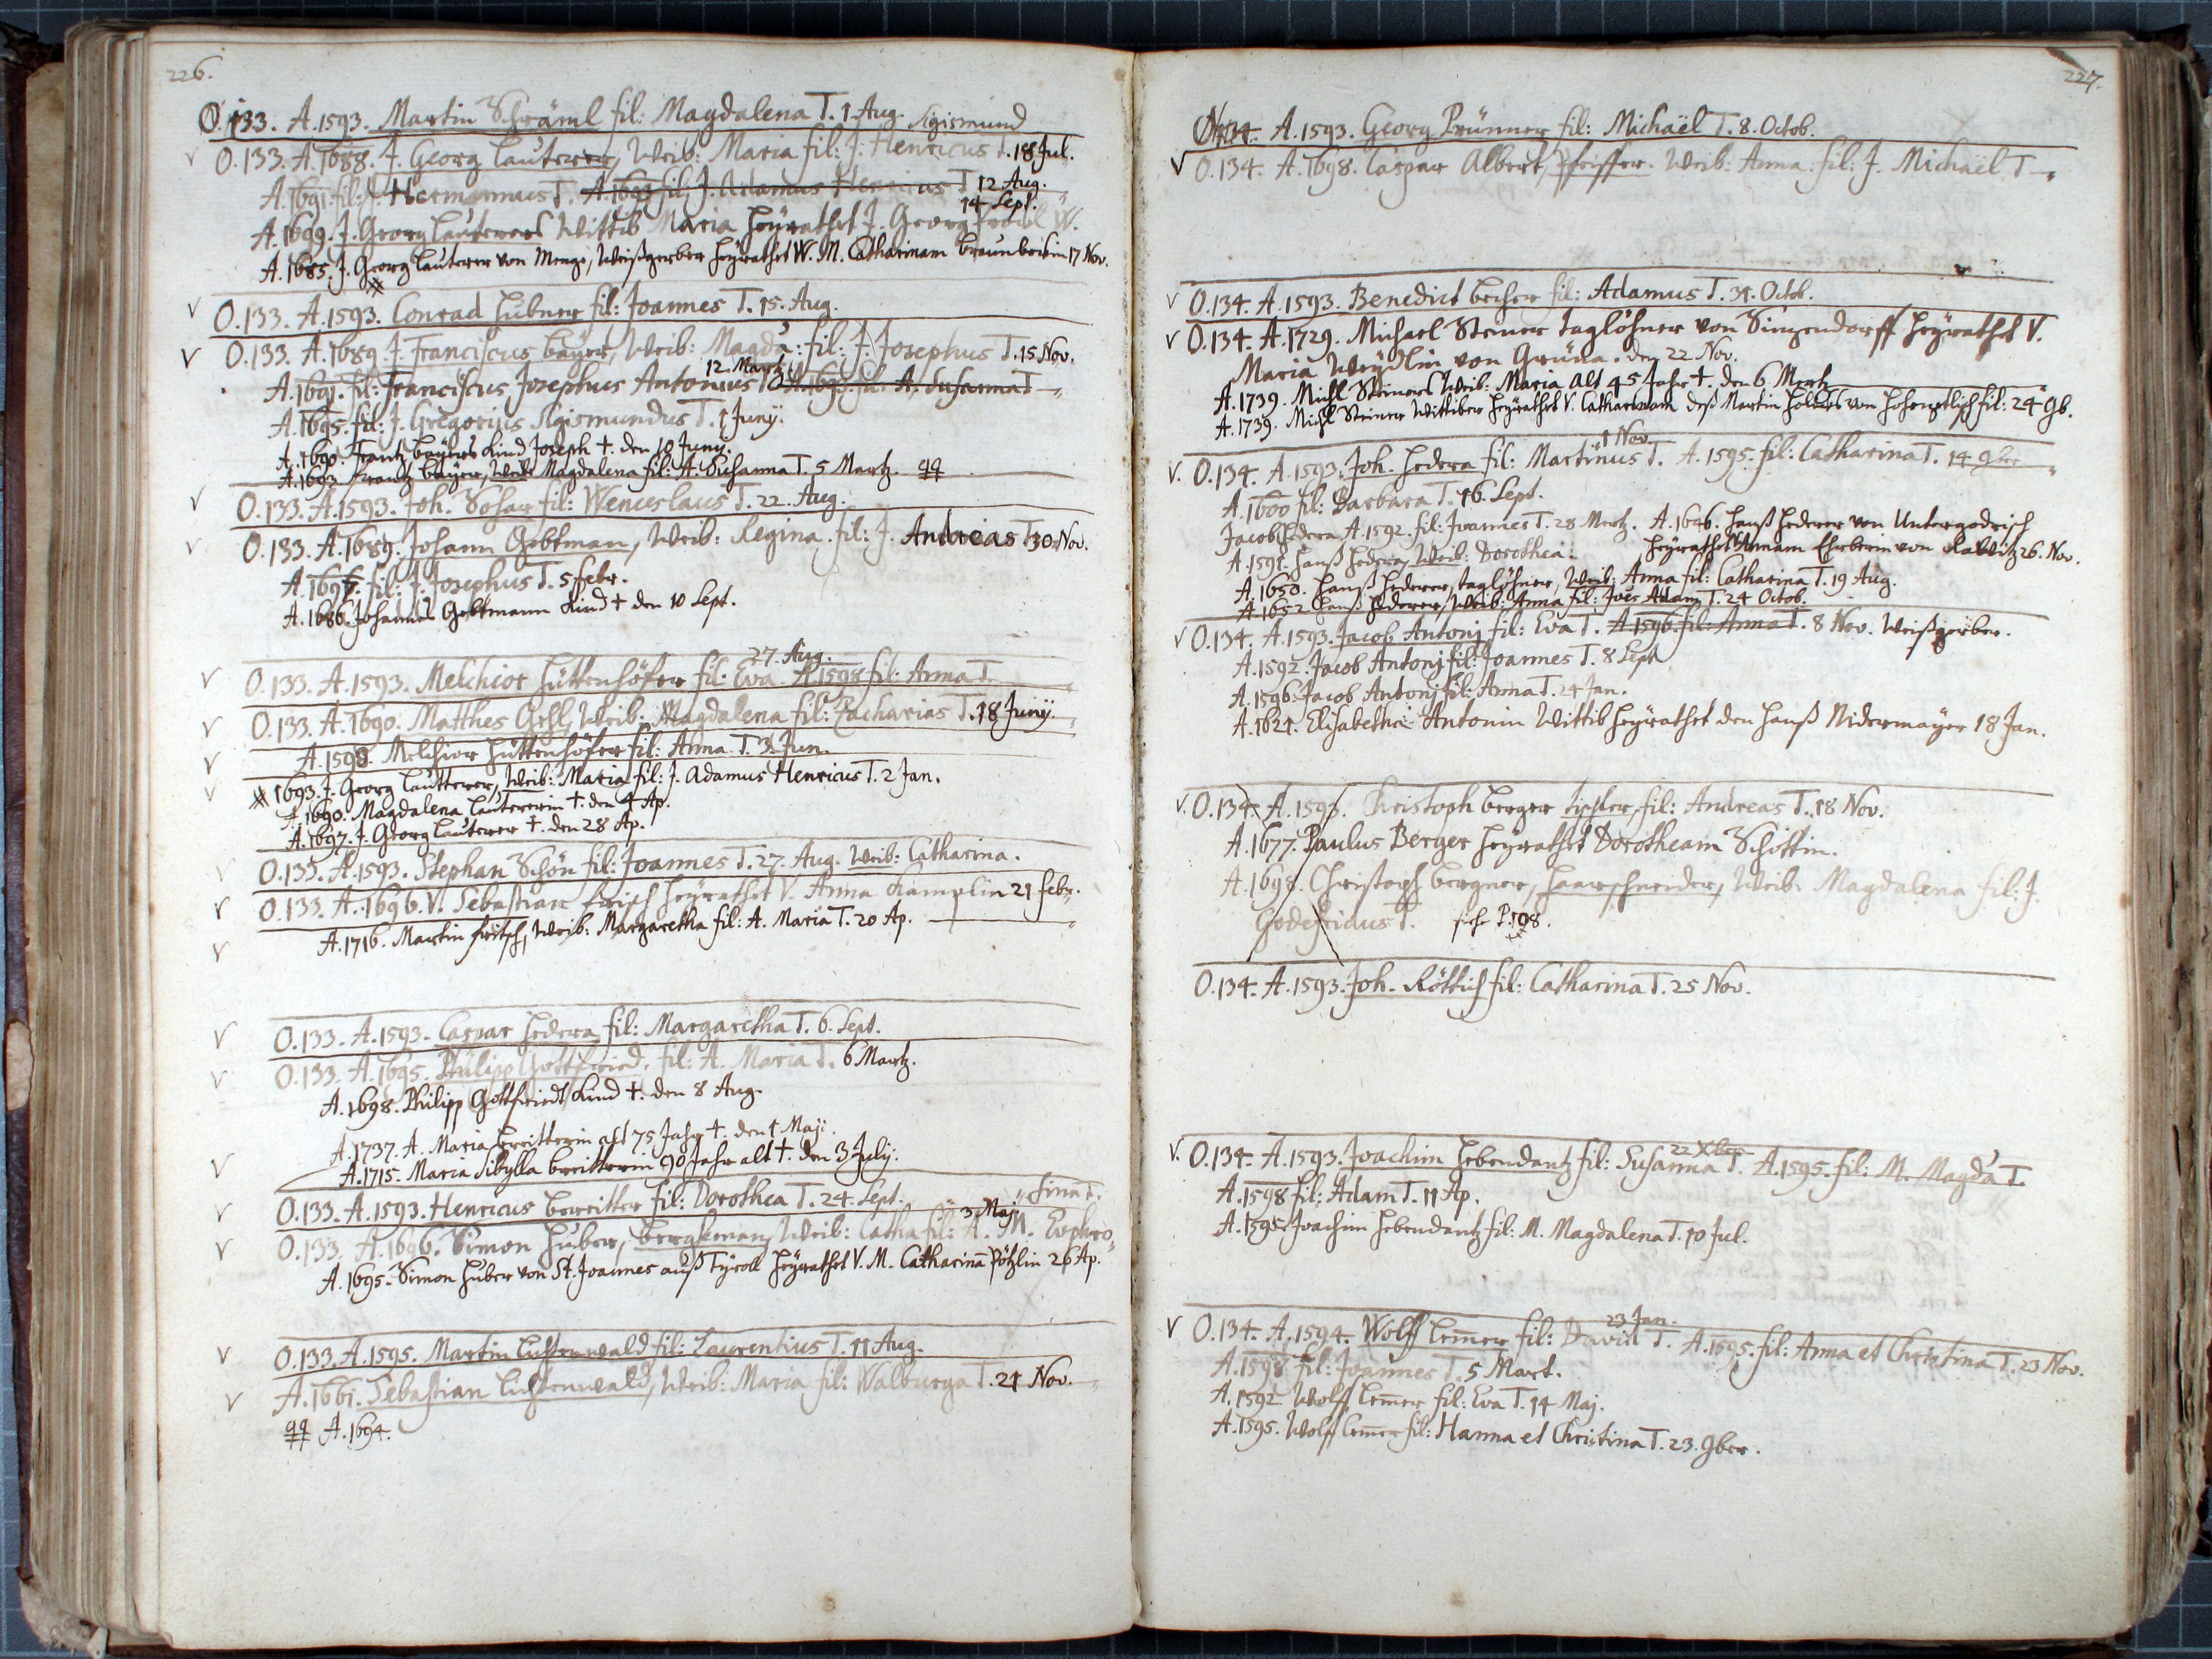 226.
O.133. A.1593. Martin Schräml fil: Magdalena T. 1 Aug.
Sigismund
O.133. A.1688. J. Georg Lauterer, Weib: Maria fil: J. Henricus T. 18 Jul.
A.1691. fil: J. Hermannus T. A.1693 fil: J. Adamus Henricus T 12 Aug.
14 Sept.
A.1699. J. Georg Lauterers Wittib Maria heyrathet J. Georg W.
A.1685. J. Georg Lauterer von Menge, Weißgerber heyrathet W. M. Catharinam Braunbeckin 17 Nov.
O.133. A.1593. Conrad Hübner fil: Joannes T. 15. Aug.
O.133. A.1689. J. Franciscus Bayer, Weib: Magda: fil: J. Josephus T. 15. Nov.
12. Martz
A.1691. fil: Franciscus Josephus Antonius T. A.1693 fil: A. Susanna T
A.1695. fil: J. Gregorius Sigismundus T. 1 Junij.
A.1690. Frantz Bayers Kind Joseph †. den 10 Junij.
A.1693 Frantz Bayer, Weib Magdalena fil: A. Susanna T. 5 Martz. qq
O.133. A.1593. Joh. Schar fil: Wenceslaus T. 22. Aug.
O.133. A.1689. Johann Gobtman, Weib: Regina. fil: J. Andreas T 30. Nov.
A.1695. fil: J. Josephus T. 5 febr.
A.1686. Johannes Gobtmann Kind † den 10 Sept.
27. Aug.
O.133. A.1593. Melchior Hüttenhöfer fil: Eva A.1598 fil: Anna T.
O.133. A.1690. Matthes Gehl, Weib: Magdalena fil: Zacharias T. 18 Junij.
A.1598. Melchior Hüttenhöfer fil: Anna T. 3. Jun.
1693. J. Georg Lautterer, Weib: Maria fil: J. Adamus Henricus T. 2 Jan.
A.1690. Magdalena Lautererin †. den 4 Ap.
A.1697. J. Georg Lauterer †. den 28 Ap.
O.133. A.1593. Stephan Schön fil: Joannes T. 27. Aug. Weib: Catharina.
O.133. A.1696. V. Sebastian Frisch heyrathet V. Anna Kamplin 21 febr.
A.1716. Martin fritsch, Weib: Margaretha fil: A. Maria T. 20 Ap.
O.133. A.1593. Caspar Hedera fil: Margaretha T. 6. Sept.
O.133. A.1695. Philipp Gottfried. fil: A. Maria T. 6 Martz.
A.1698. Philipp Gottfriedt Kind †. den 8 Aug.
A.1737. A. Maria Breitterin alt 75 Jahr †. den 1 Maji.
A.1715. Maria Sibylla Breitterin 90 Jahr alt †. den 3 July.
O.133. A.1593. Henricus Bereitter fil: Dorothea T. 24. Sept.
sina T.
3 Maji
O.133. A.1696. Simon Huber, Bergkman, Weib: Catha fil: A. M. Euphro
A.1695. Simon Huber von St. Joannes auß Tyroll heyrathet V. M. Catharina Pötzlin 26 Ap.
O.133. A.1595. Martin Lichtenwald fil: Laurentius T. 11 Aug.
A.1661. Sebastian Lichtenwald, Weib: Maria fil: Walburga T. 21 Nov.
qq A.1694.
227.
O.134. A.1593. Georg Prünner fil: Michaël T. 8. Octob.
O.134. A.1698. Caspar Albert, Pfeiffer. Weib: Anna. fil: J. Michaël T
O.134. A.1593. Benedict Becher fil: Adamus T. 31. Octob.
O.134. A.1729. Michael Steiner Taglöhner von Sinzendorff heyrathet V.
Maria Weydlin von Grüna. den 22 Nov.
A.1739. Michl Steiners Weib: Maria alt 45 Jahr †. den 6 Mertz
A.1739. Michl Steiner Wittiber heyrathet V. Catharinam deß Martin von fil: 24 9b.
1 Nov.
O.134. A.1593. Joh. Hedera fil: Martinus T. A.1595. fil: Catharina T. 14 9ber
A.1600 fil: Barbara T. 16. Sept.
Jacob Hedera A.1592. fil: Joannes T. 28 Mertz. A.1646. Hanß Hederer von Untergodrisch
A.1591. Hanß Hedera, Weib: Dorothea. heyrathet Annam Eherberin von 26. Nov.
A.1650. Hanß Hederer, Taglöhner, Weib: Anna fil: Catharina T. 19 Aug.
A.1652 Hanß Hederer, Weib: Anna fil: Joes Adam T. 24 Octob.
O.134. A.1593. Jacob Antonj fil: Eva T. A.1596. fil: Anna T. 8 Nov. Weißgerber.
A.1592. Jacob Antonj fil: Joannes T. 8 Sept
A.1596. Jacob Antonj fil: Anna T. 24 Jan.
A.1621. Elisabetha Antonin Wittib heyrathet den Hanß Nidermayer 18 Jan.
O.134. A.1593. Christoph Berger Tischler, fil: Andreas T. 18 Nov.
A.1677. Paulus Berger heyrathet Dorotheam Schöttin.
A.1698. Christoph Bergner, Haarschneider, Weib: Magdalena fil: J.
Godefridus T. siehe P. 198.
O.134. A.1593. Joh. Röttich fil: Catharina T. 25 Nov.
22 Xber
O.134. A.1593. Joachim Hebendantz fil: Susanna T. A.1595. fil: M. Magda T.
A.1598 fil: Adam T. 11 Ap.
A.1595. Joachim Hebendantz fil: M. Magdalena T. 10 Jul.
23 Jan.
O.134. A.1594. Wolff Lem̄er fil: David T. A.1595. fil: Anna et Christina T. 23 Nov.
A.1598 fil: Joannes T. 5 Mart.
A.1592. Wolff Lem̄er fil: Eva T. 14 Maj.
A.1595. Wolff Lem̄er fil: Hanna et Christina T. 23. 9ber.